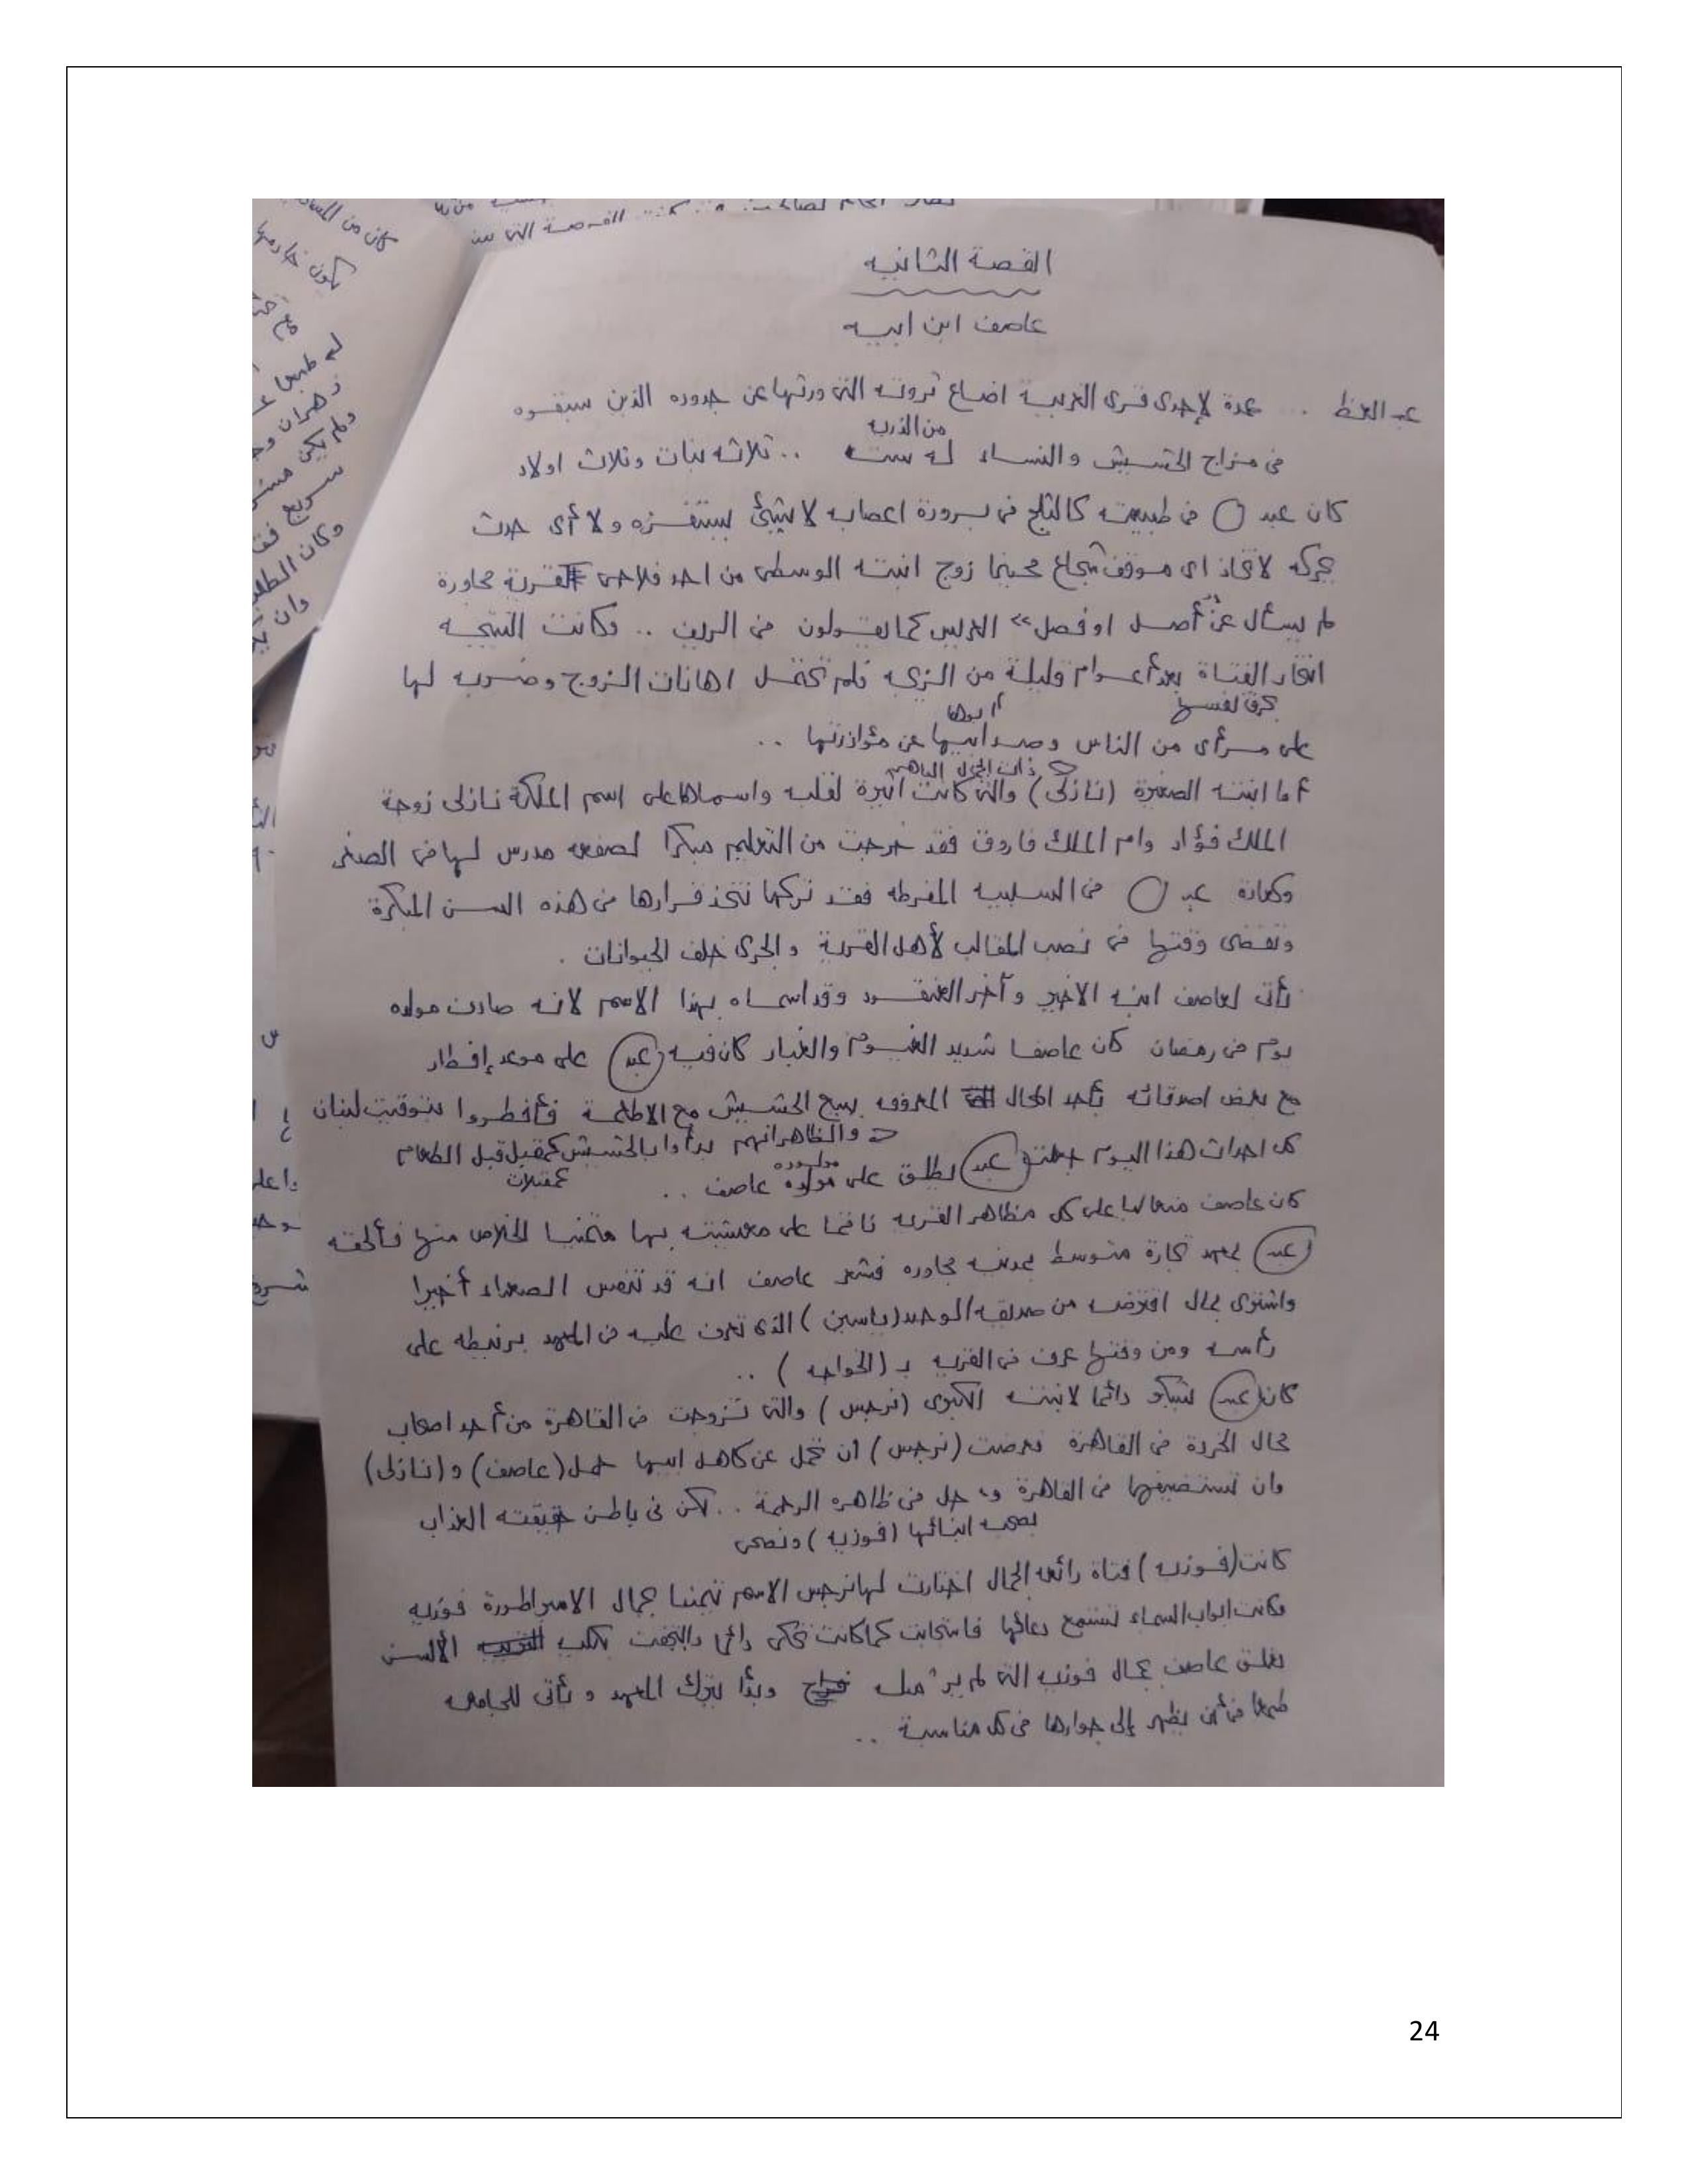 القصة الثانيه
عاصف ابن ابيه
عبد .. عمدة لإحدى قرى الغربية اضاع ثروته التى ورثها عن جدوده الذين سبقوه
من الذريه
فى مزاج الحشيش والنساء له ستة .. ثلاثه بنات وثلاث اولاد
كان عبد فى طبيعته كالثلج فى برودة اعصابه لا شئ يستفزه ولا أى حدث
يحركه لاتخاذ اى موقف شجاع فحينما زوج ابنته الوسطى من احد فلاحى القرية مجاورة
لم يسأل عن "أصل او فصل" العريس كما يقولون فى الريف .. وكانت النتيجه
انتحار الفتاة بعد أعوام قليلة من الزيجه فلم تحتمل اهانات الزوج وضربه لها
بحرق نفسها
أبوها
على مرأى من الناس وصد ابيها عن مؤازرتها ..
ذات الجمال الباهر
أما ابنته الصغيرة (نازلى) والتى كانت أثيرة لقلبه واسماها على اسم الملكة نازلى زوجة
الملك فؤاد وام الملك فاروق فقد خرجت من التعليم مبكرا لصفعه مدرس لها فى الصغر
وكعادة عبد فى السلبيه المفرطه فقد تركها تتخذ قرارها فى هذه السن المبكرة
وتقضى وقتها فى نصب المقالب لأهل القرية والجرى خلف الحيوانات .
نأتى لعاصف ابنه الاخير وآخر العنقود وقد اسماه بهذا الاسم لانه صادف مولده
يوم فى رمضان كان عاصفا شديد الغيوم والغبار كان فيه (عبد) على موعد إفطار
مع بعض اصدقائه بأحد المحال المعروفه ببيع الحشيش مع الاطعمة فأفطروا بتوقيت لبنان
والظاهر انهم بدأوا بالحشيش كمقبل قبل الطعام
كمقبلات
كل احداث هذا اليوم جعلت (عبد) يطلق على مولوده عاصف ..
مولوده
كان عاصف متعاليا على كل مظاهر القريه ناقما على معيشته بها متمنيا الخلاص منها فألحقه
(عبد) بمعهد تجارة متوسط بمدينه مجاوره فشعر عاصف انه قد تنفس الصعداء أخيرا
واشترى بمال اقترضه من صديقه الوحيد (ياسين) الذى تعرف عليه فى المعهد برنيطه على
رأسه ومن وقتها عرف فى القريه بـ (الخواجه) ..
كان (عبد) يشكو دائما لابنته الكبرى (نرجس) والتى تزوجت فى القاهرة من أحد اصحاب
محال الخردة فى القاهرة فعرضت (نرجس) ان تحمل عن كاهل ابيها حمل (عاصف) و (نازلى)
وان تستضيفهما فى القاهرة حل فى ظاهره الرحمة .. لكن فى باطن حقيقته العذاب
بصحبه ابنائها (فوزيه) و
كانت (فوزيه) فتاة رائعه الجمال اختارت لها نرجس الاسم تيمنا بجمال الامبراطورة فوزيه
وكانت ابواب السماء تستمع دعائها فاستجابت كما كانت تحكى دائما الألسن
تعلق عاصف بجمال فوزيه التى لم ير مثله وبدأ يترك المعهد و يأتى للجامعه
طمعا فى أن يظهر إلى جوارها فى كل مناسبة ..
24